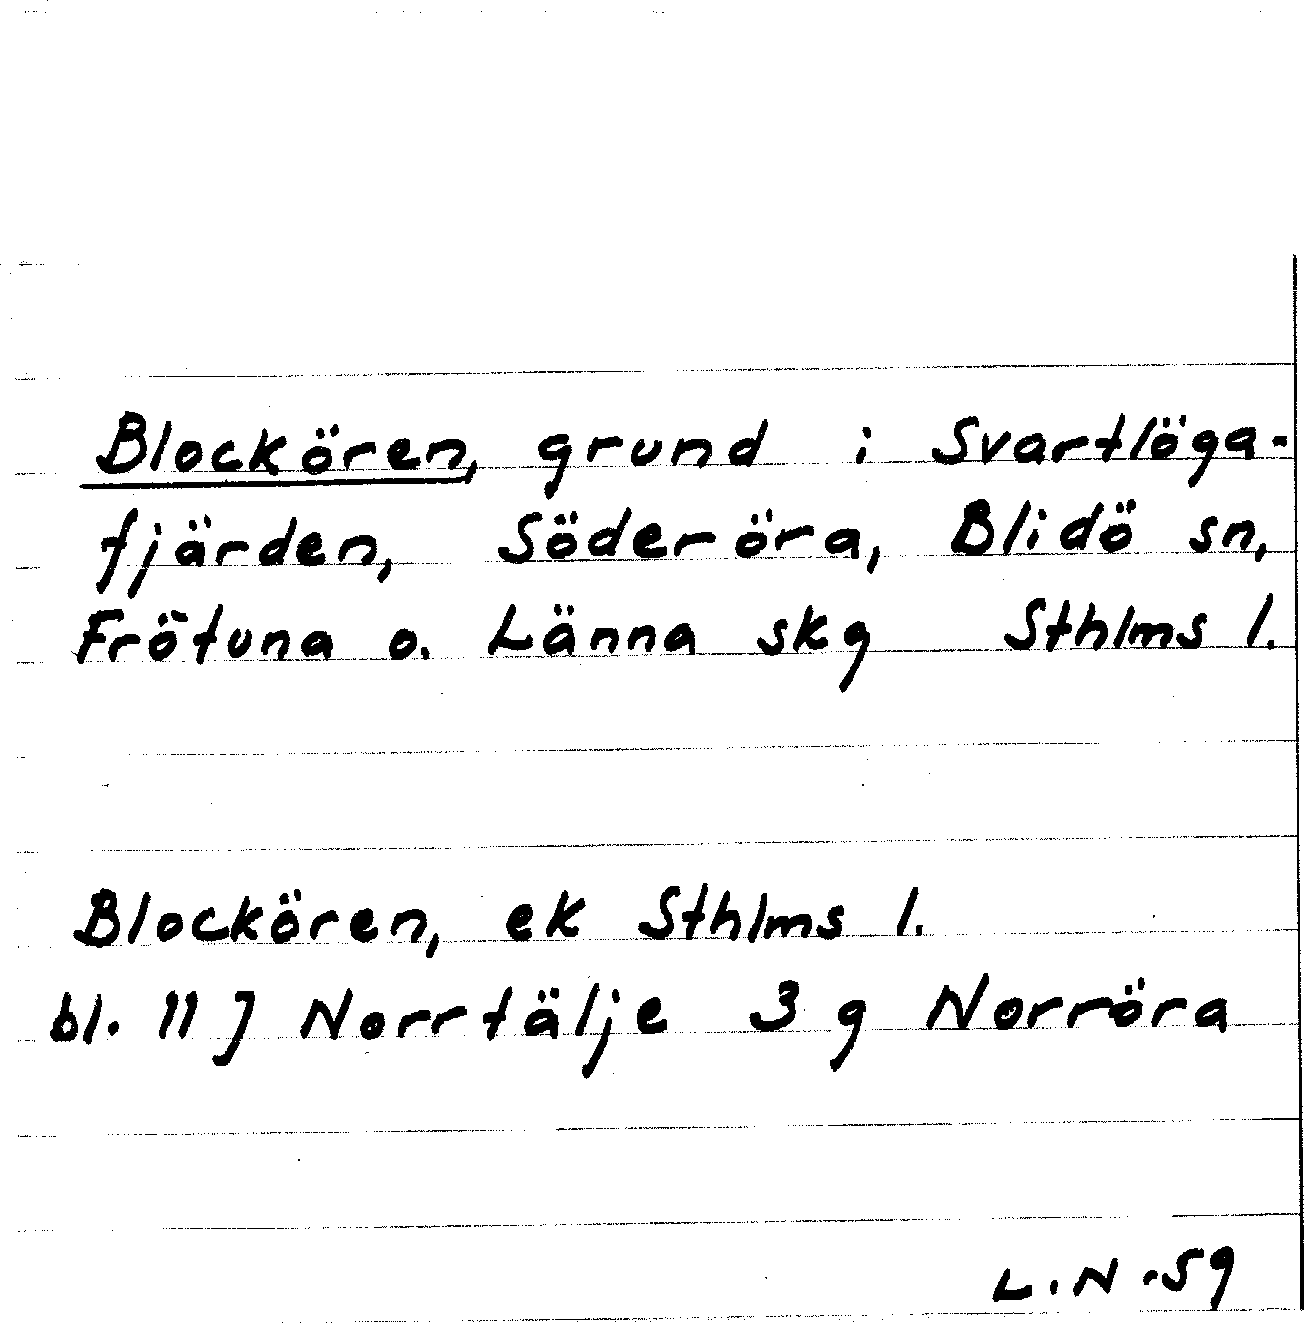 Blockören, grund i Svartlöga-
fjärden, Söderöra, Blidö sn,
Frötuna o. Länna skg Sthlms l.
Blockören, ek Sthlms l.
bl. 11 J Norrtälje 3 g Norröra
L.N -59